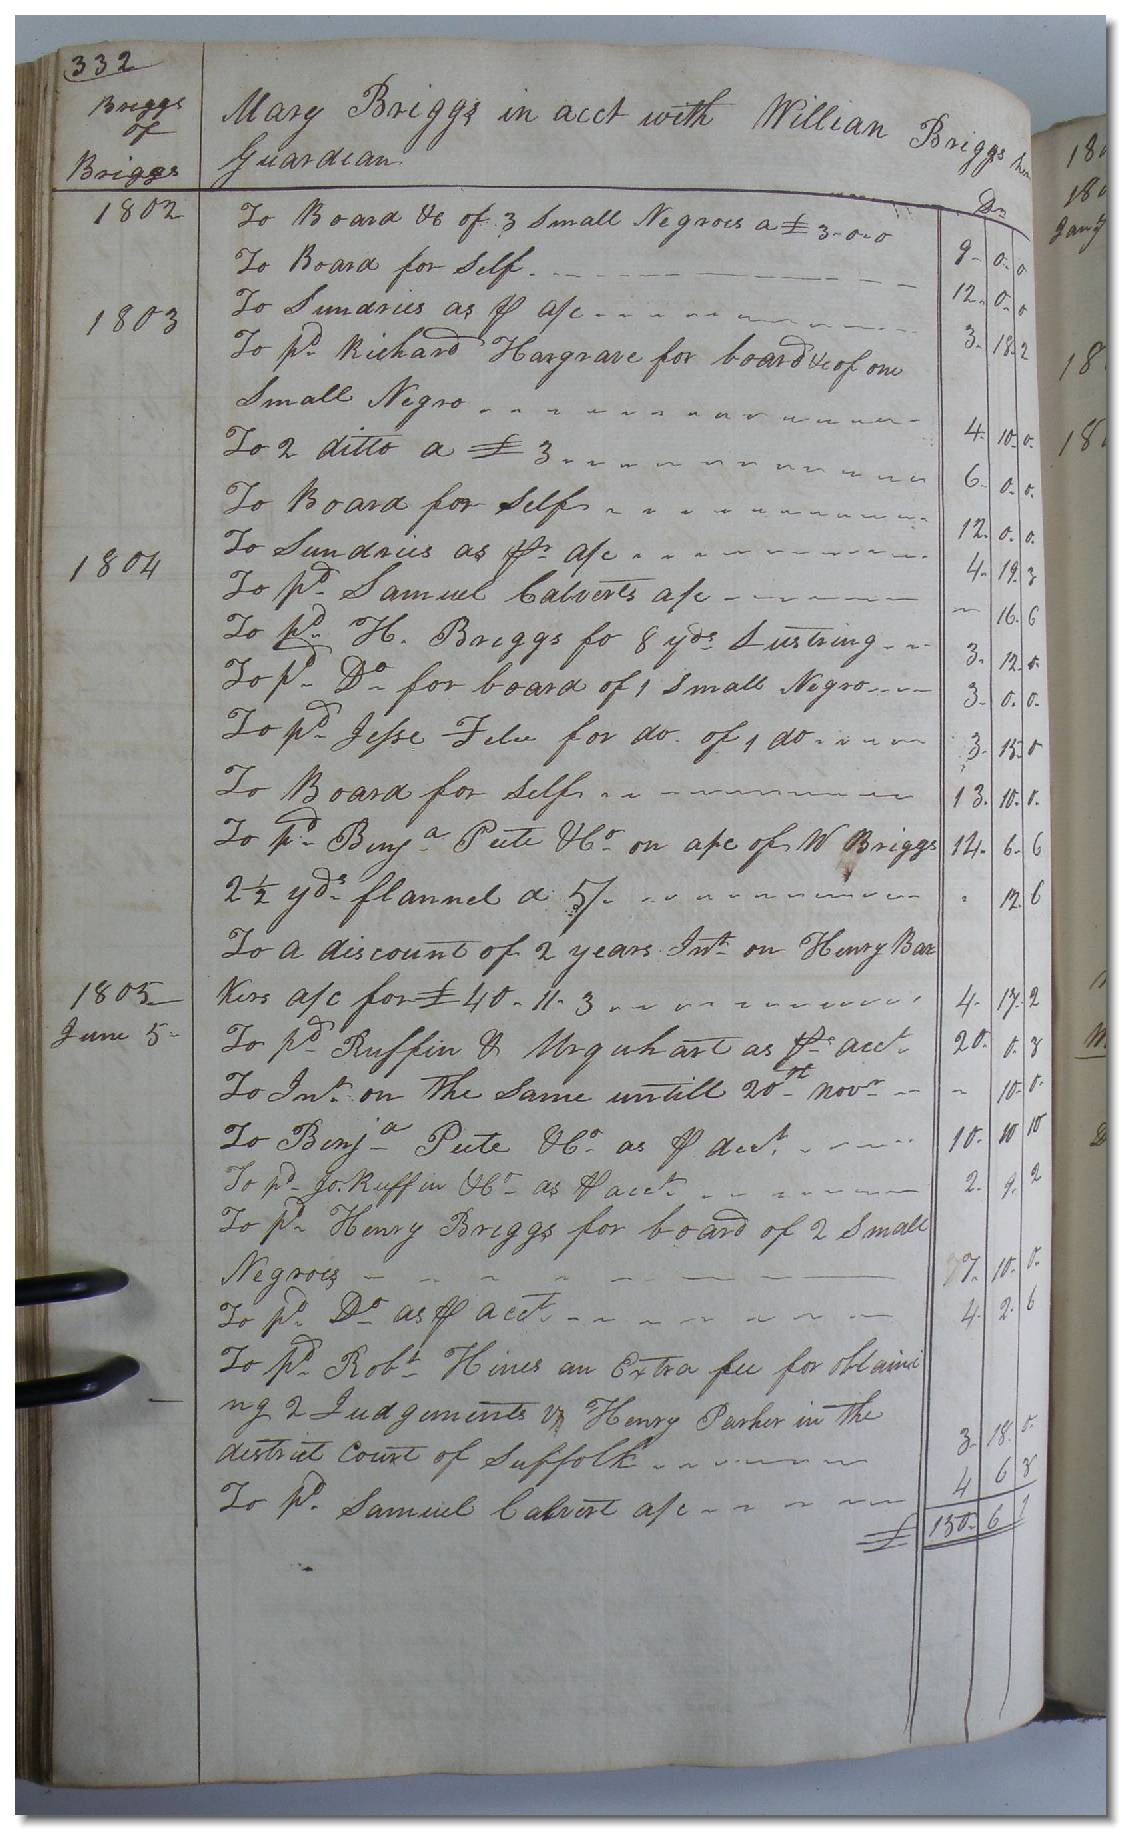 332
Briggs
of
Briggs
Mary Briggs in acct with Willian Briggs her
Guardian.
Dr
1802 To Board &c of 3 Small Negroes a £ 3-0-0 9- 0- 0
To Board for Self 12- 0- 0
1803 To Sundries as ⅌ a/c 3- 18- 2
To pd. Richard Hargrave for board &c of one
Small Negro 4- 10- 0-
To 2 ditto a £ 3 6- 0- 0-
To Board for Self 12- 0- 0-
1804 To Sundries as ⅌r a/c 4- 19- 3
To pd. Samuel Calverts a/c - 16- 6
To pd. H. Briggs fo 8 yds Lustring 3- 12- 0-
To pd. Do for board of 1 Small Negro 3- 0- 0-
To pd. Jesse for do. of 1 do 3- 15- 0
To Board for Self 13- 10- 0-
To pd. Benja Pete &Co. on a/c of W Briggs 14- 6- 6
2½ yds. flannel a 5/- 12- 6
To a discount of 2 years Int. on Henry Bar
1805 kers a/c for £ 40-11-3 4- 17- 2
June 5- To pd. Ruffin & Urquhart as ⅌r acct. 20- 0- 3
To Int. on the Same untill 20th novr - 10- 0-
To Benja Pete &Co. as ⅌ acct. 10- 10 10
To pd. Jo. Ruffin &Co. as ⅌ acct. 2- 9- 2
To pd. Henry Briggs for board of 2 Small
Negroes 7- 10- 0-
To pd. Do as ⅌ acct 4- 2- 6
To pd. Robt. Hines an Extra fee for obtaini
ng 2 Judgements vs Henry Parker in the
district Court of Suffolk 3- 18- 0-
To pd. Samuel Calvert a/c 4 6 3
£ 150- 6